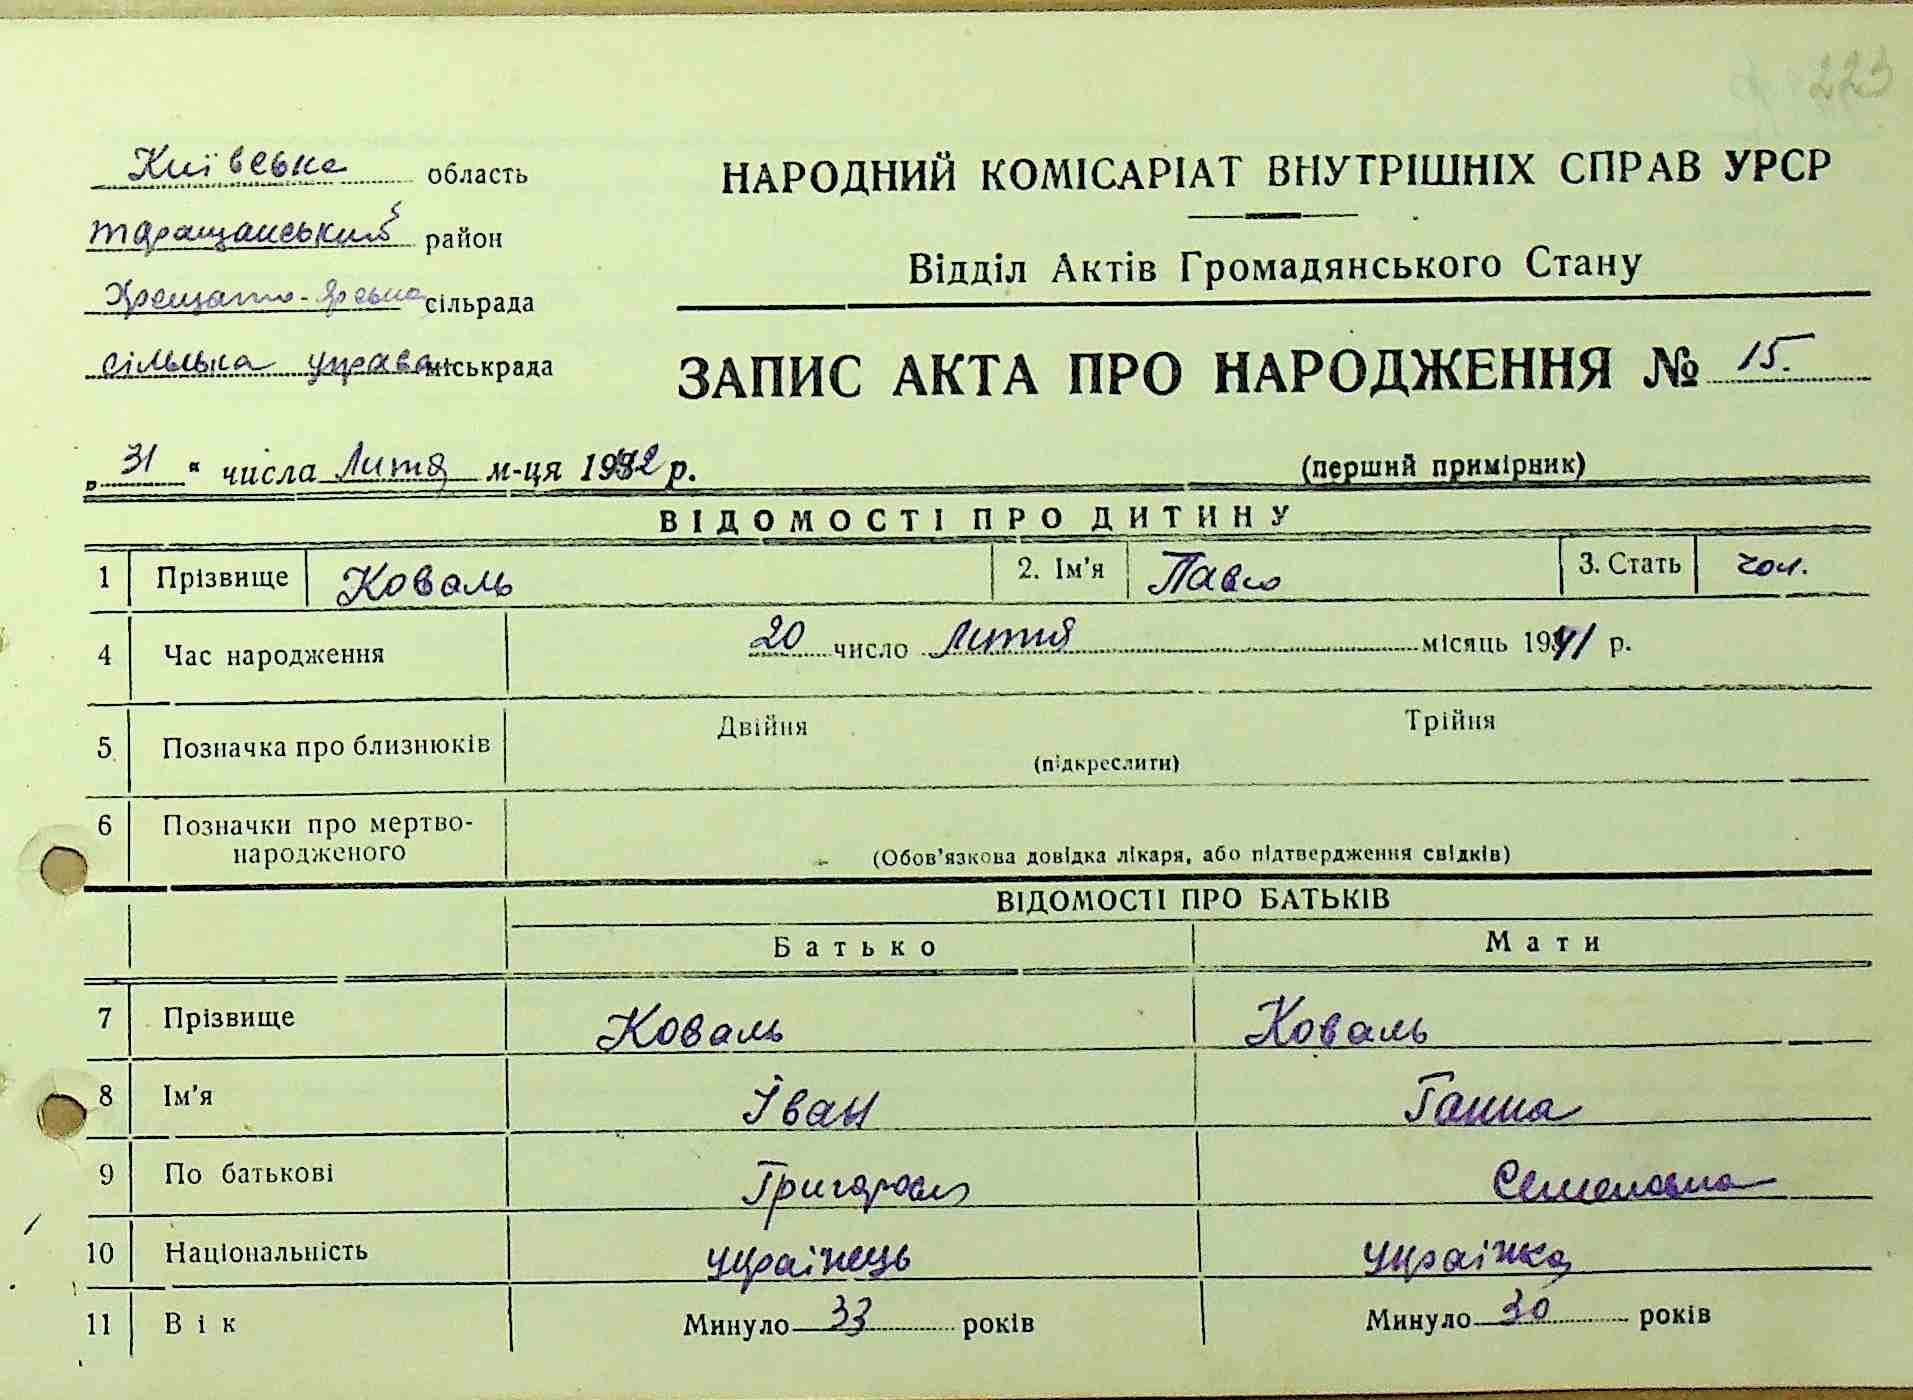 223
Київська область
НАРОДНИЙ КОМІСАРІАТ ВНУТРІШНІХ СПРАВ УРСР
Таращанський район
Відділ Актів Громадянського Стану
Хрещато-Ярська сільрада
сільська управа міськрада
ЗАПИС АКТА ПРО НАРОДЖЕННЯ № 15.
„31“ числа Литя м-ця 1942 р.
(перший примірник)
ВІДОМОСТІ ПРО ДИТИНУ
1 Прізвище Коваль 2. Ім'я Павло 3. Стать чол.
4 Час народження 20 число Литя місяць 1941 р.
5 Позначка про близнюків Двійня Трійня
(підкреслити)
6 Позначки про мертво-
народженого
(Обов'язкова довідка лікаря, або підтвердження свідків)
ВІДОМОСТІ ПРО БАТЬКІВ
Батько Мати
7 Прізвище Коваль Коваль
8 Ім'я Іван Ганна
9 По батькові Григоров Семеновна
10 Національність українець українка
11 Вік Минуло 33 років Минуло 30 років